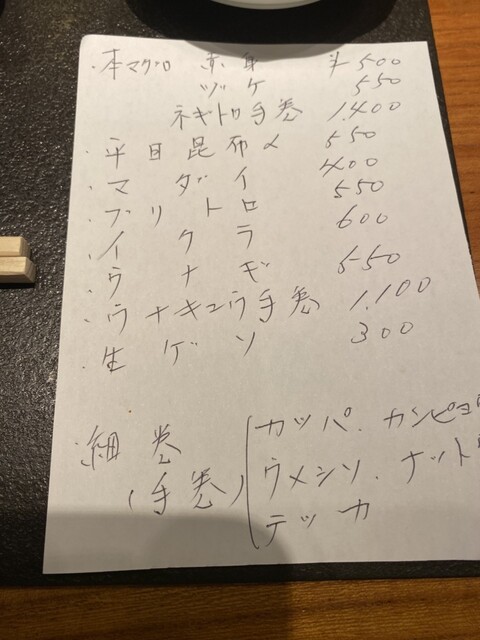 ・本マグロ 赤身 ¥500
ヅケ 550
ネギトロ手巻 1,400
・平目昆布〆 550
・マダイ 400
・ブリトロ 550
・イクラ 600
・ウナギ 550
・ウナキュウ手巻 1,100
・生ゲソ 300
・細巻 カッパ.カンピョ
(手巻) ウメシソ.ナット
テッカ